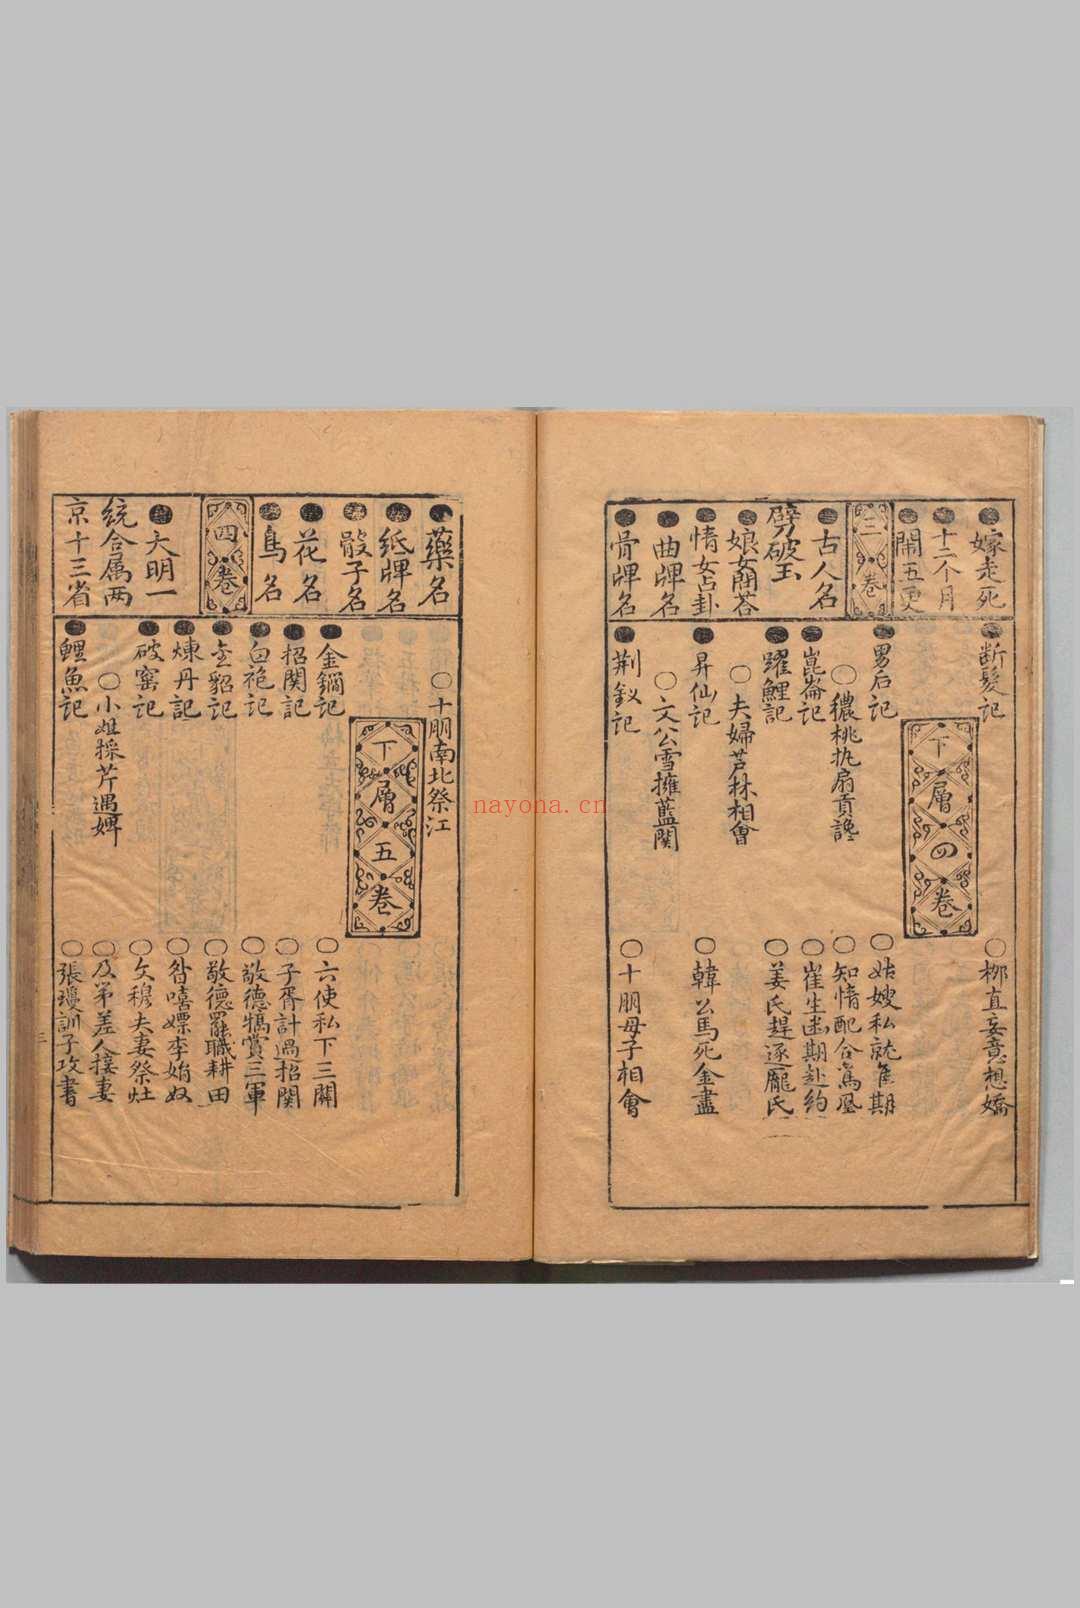 嫁走死
十二个月
鬧五更
三卷
古人名
劈破玉
娘女問荅
情女占卦
曲牌名
骨牌名
断髮记
下層四卷
男后记
○穠桃执扇貢讒
崑崙记
躍鯉記
○夫婦芦林相會
昇仙记
○文公雪擁藍関
荆釵记
○梛直妄意想嬌
○姑嫂私就隹期
○知情配合鸞凰
○崔生赴期赴約
○姜氏趕逐龐氏
○韓公馬死金盡
○十朋母子相會
藥名
紙牌名
骰子名
花名
鳥名
四卷
大明一
统合属两
京十三省
○十朋南北祭江
下層五卷
金鐗记
招関記
白袍记
金貂记
煉丹記
破窑记
○小姐採芹遇婢
鯉魚记
○六使私下三關
○子胥計過招関
○敬德犒賞三軍
○敬德罷職耕田
○嘻嫖李娟奴
○文穆夫妻祭灶
○及第差人接妻
○張瓊訓子攻書
三
nayona.cn